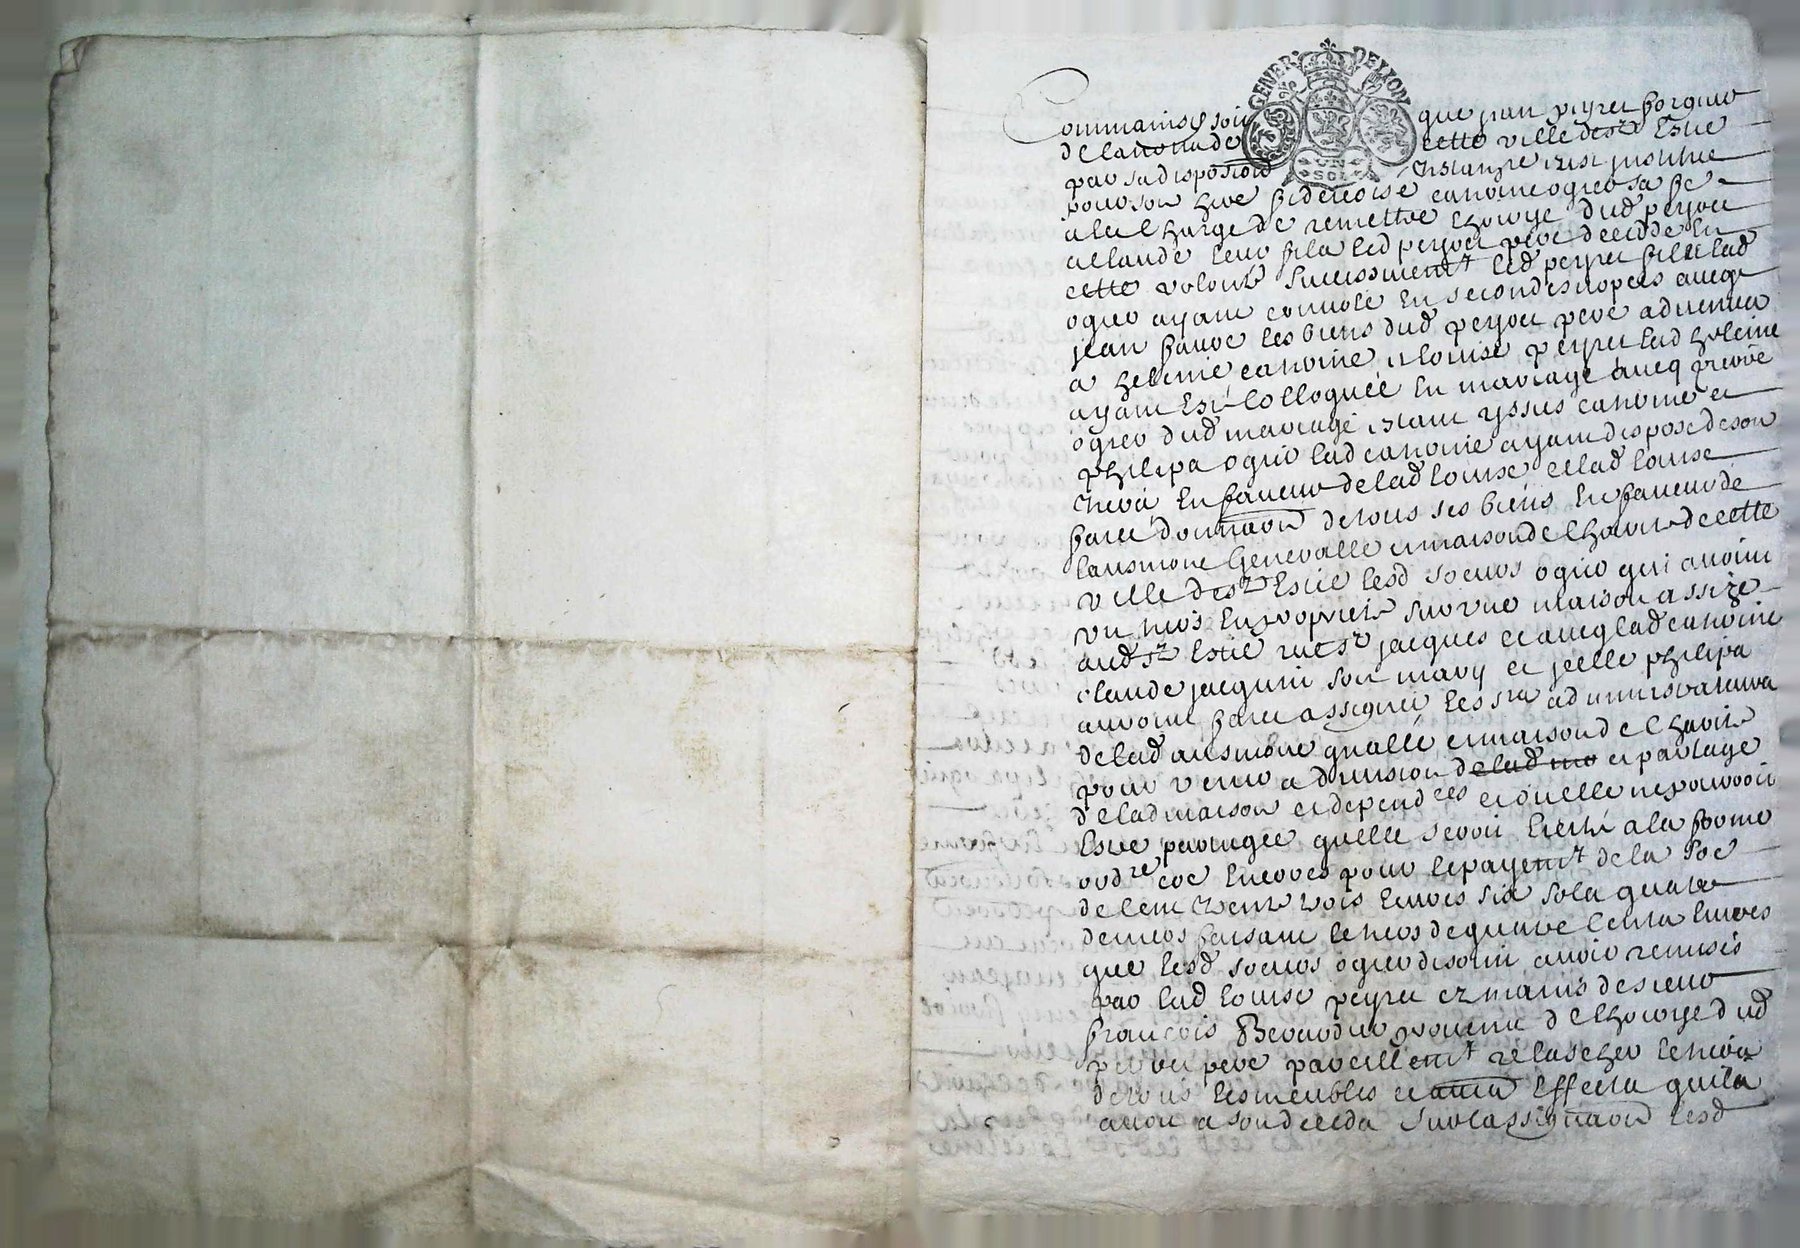 GENER. DE LYON
UN SOL
Comme ainsy soit que jean peyret forgeur
de la cette ville de st Estie
par sa disposition
pour son here fideroise canoine ogier sa fe
a la charge de remettre lhoirye dud peyret
a claude leur fils led peyret pere decede en
cette volonté successivemt led peyret fils et lad
ogier ayant convolé en secondes nopces avecq
jean faure les biens dud peyret pere advenus
a heleine canoine et louise peyret lad heleine
ayant esté colloquée en mariage avecq pierre
ogier dud mariage estant yssus canoine et
philipa ogier lad canoine ayant disposé de son
tiers en faveur de lad louise et lad louise
faict donnaon de tous ses biens en faveur de
lausmone generalle et maison de charité de cette
ville de st Estie lesd soeurs ogier qui avoint
un tiers en proprieté sur une maison assize
aud st Estie rue st jacques et avecq lad canoine
claude jacquin son mary et icelle philipa
auroint faict assigner les srs administrateurs
de lad ausmone gnalle et maison de charité
pour venir a division de lad mo et partage
de lad maison et dependces et ou elle ne pourroit
estre partagée quelle seroit licitée a la forme
ordre coe encores pour le payemt de la soe
de cent trente trois livres six sols quatre
deniers faisant le tiers de quatre cents livres
que lesd soeurs ogier disoint avoir remises
par lad louise peyret ez mains de sieur
françois provenu de lhoirye dud
peyret pere pareillemt relascher le tiers
de tous les meubles et effects quils
avoit a son deceds sur lassignaon lesd